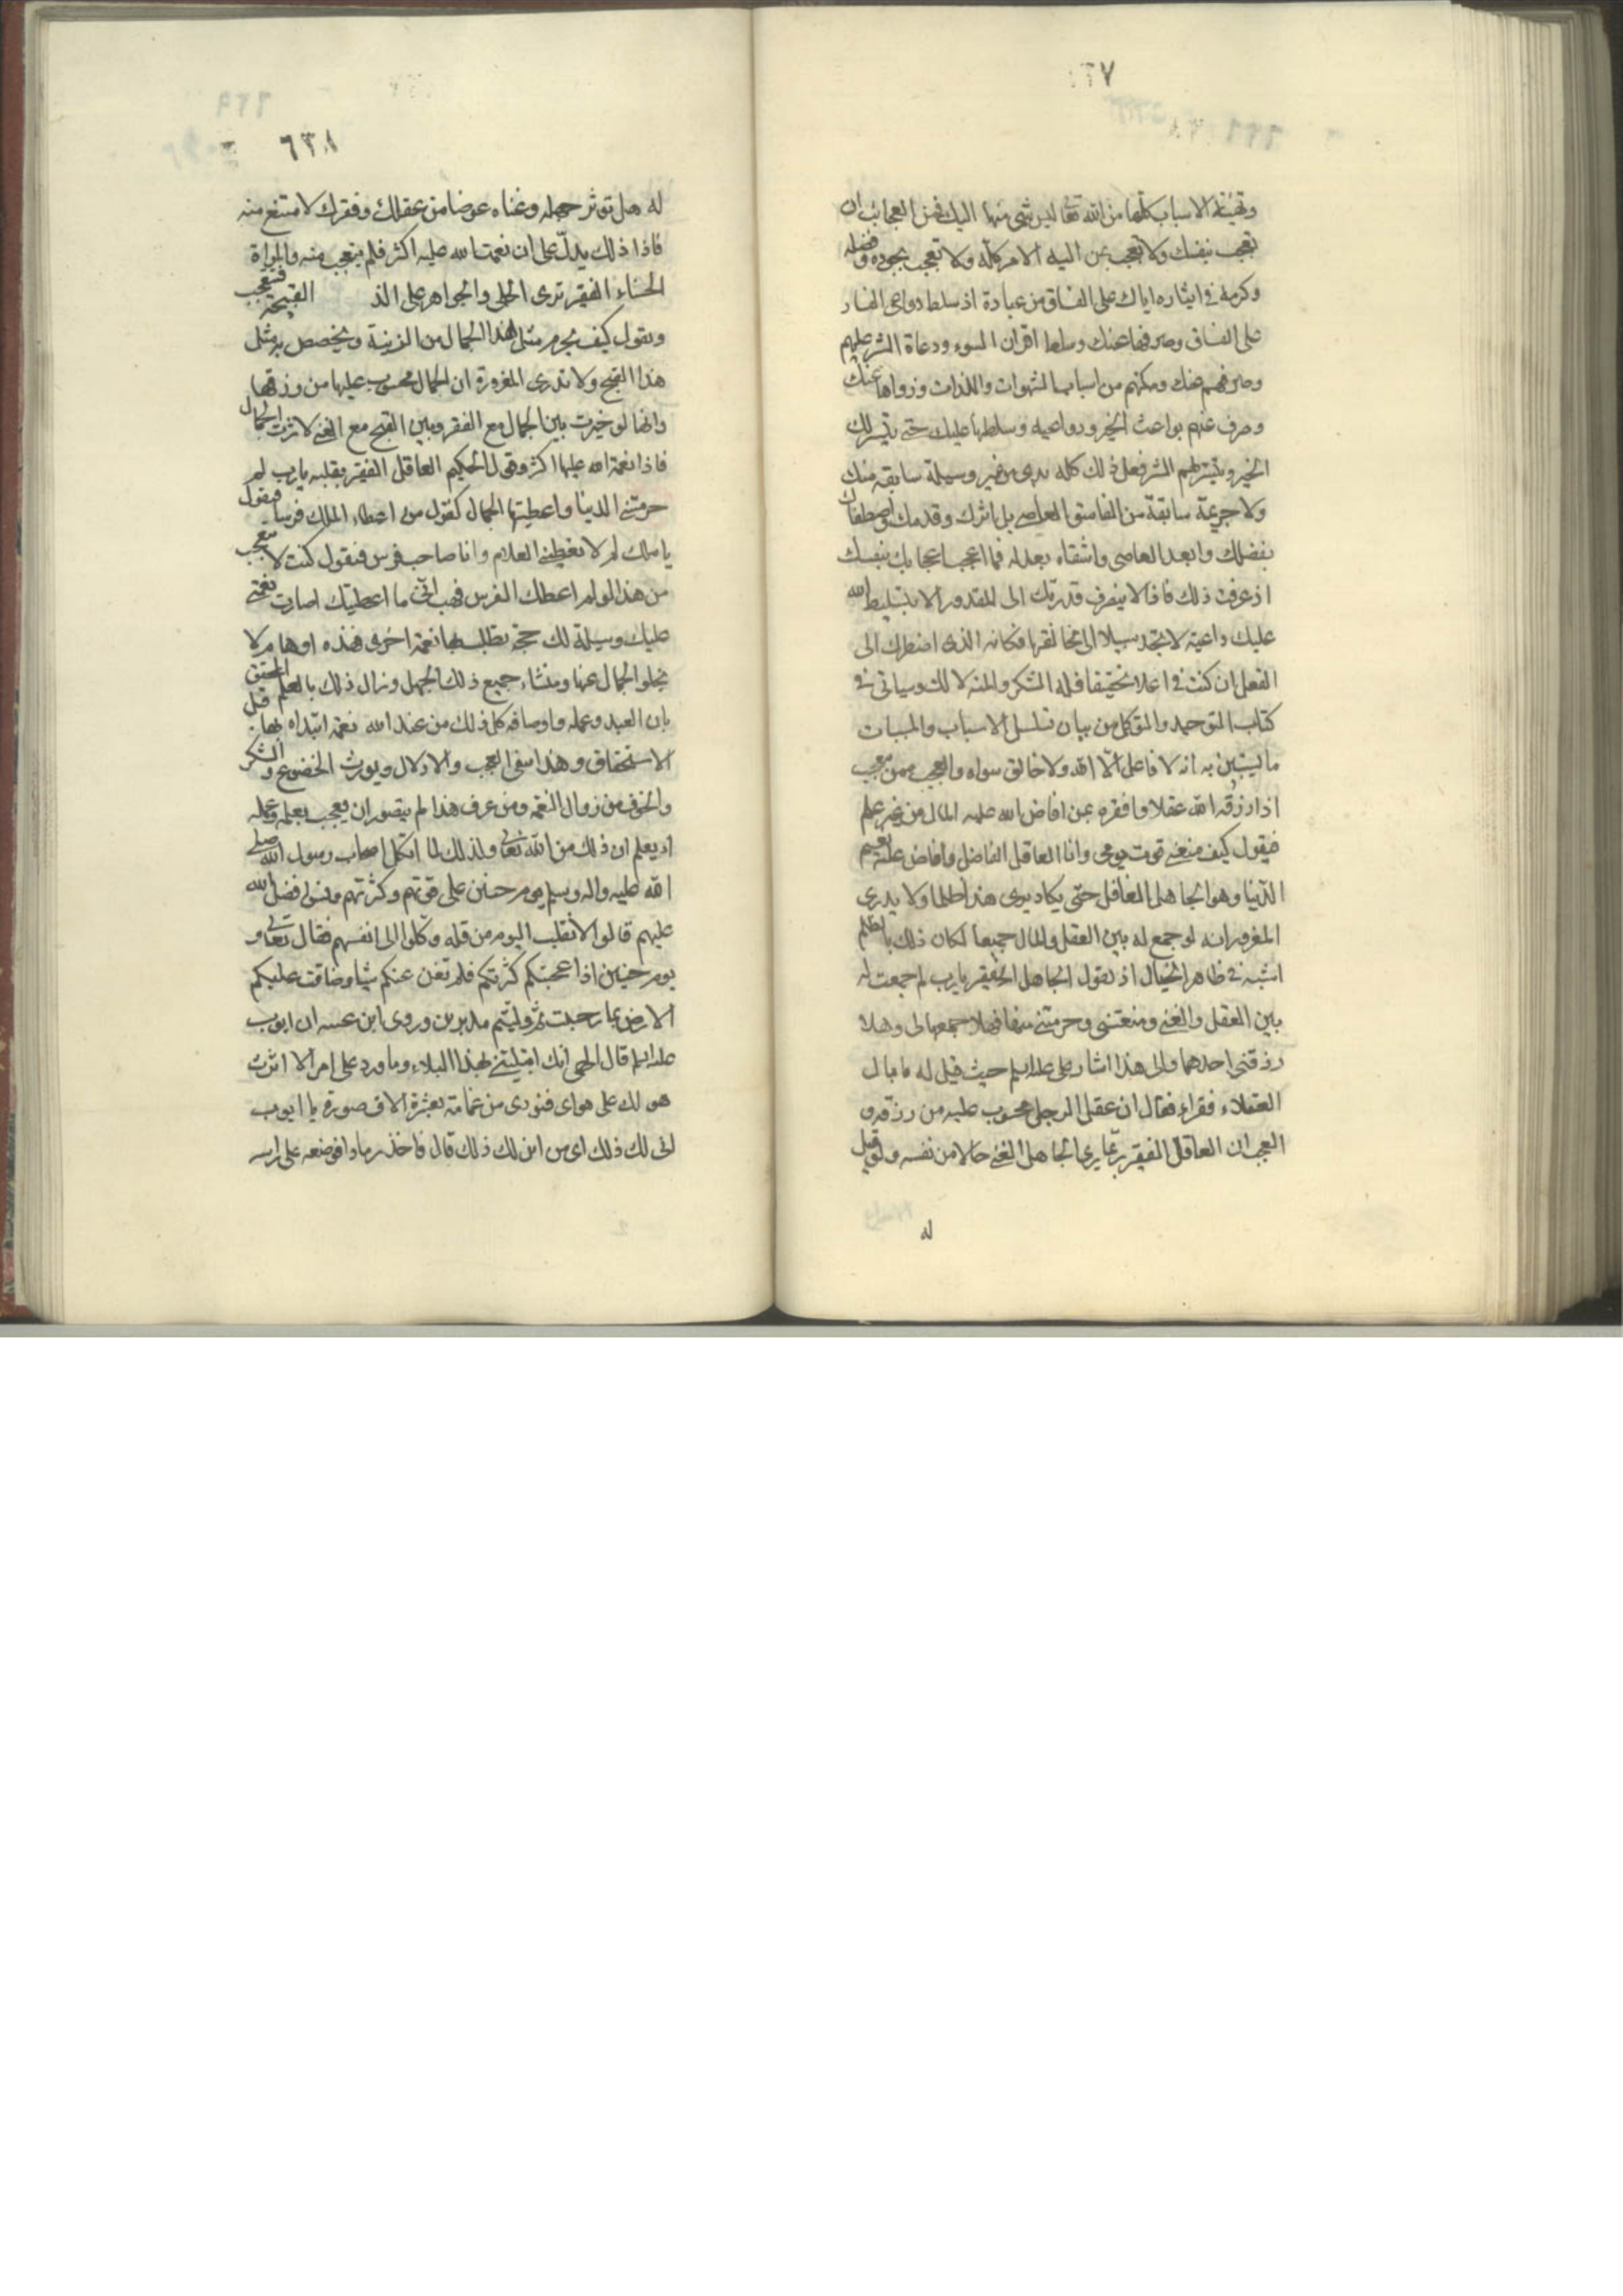 ٦٣٧
وتهيئة الاسباب كلها من الله تعالى ليس شئ منها اليك فمن العجائب ان
تعجب بنفسك ولا تعجب بمن اليه الامر كله ولا تعجب بجوده وفضله
وكرمه في ايثاره اياك على الفساق من عبادة اذ سلط دواعى الفساد
على الفساق وصرفها عنك وسلط اقران السوء ودعاة الشر عليهم
وصرفهم عنك ومكنهم من اسباب الشهوات واللذات وزواها عنك
وصرف عنهم بواعث الخير ودواعيه وسلطها عليك حتى يتيسر لك
الخير ويتيسر لهم الشر فعل ذلك كله بك من غير وسيلة سابقة منك
ولا جريمة سابقة من الفاسق العاصي بل اثرك وقدمك واصطفاك
بفضله وابعد العاصى واشقاه بعدله فما اعجب اعجابك بنفسك
اذ عرفت ذلك فاذا لا ينصرف قدرتك الى المقدور الا بتسليط الله
عليك داعية لا تجد سبيلا الى مخالفتها فكانه الذى اضطرك الى
الفعل ان كنت فاعلا تحقيقا فله الشكر والمنه لا لك وسياتى في
كتاب التوحيد والتوكل من بيان تسلسل الاسباب والمسببات
ما ليتبين به انه لا فاعل الا الله ولا خالق سواه والعجب ممن تعجب
اذا رزقه الله عقلا وافقره ممن افاض الله عليه المال من غير علم
فيقول كيف منعني قوت يومى وانا العاقل الفاضل وافاض عليه نعيم
الدنيا وهو الجاهل الغافل حتى يكاد يرى هذا ظلما ولا يدرى
المغرور انه لو جمع له بين العقل والمال جميعا لكان ذلك بالظلم
اشبه في ظاهر الخيال اذ يقول الجاهل الفقير يا رب لم جمعت له
بين العقل والغنى ومنعتنى وحرمتني منهما فهلا جمعهما لى وهلا
رزقتنى احدهما والى هذا اشار على عليه السلم حيث قيل له ما بال
العقلاء فقراء فقال ان عقل الرجل محسوب عليه من رزقه و
العجب ان العاقل الفقير ربما يرى الجاهل الغني حالا من نفسه ولو قيل
له
٦٣٨
له هل توثر جهله وغناه عوضا من عقلك وفقرك لامتنع منه
فاذا ذلك يدل على ان نعمة الله عليه اكثر فلم يتعجب منه والمراة
الحسناء الفقير ترى الحلى والجواهر على الذ القبيحة فتتعجب
وتقول كيف يحرم مثل هذا الجمال من الزينة ويخصص به مثل
هذا القبح ولا تدرى المغرورة ان الجمال محسوب عليها من رزقها
وانها لو خيرت بين الجمال مع الفقر وبين القبح مع الغنى لاثرت الجمال
فاذا نعمة الله عليها اكثر وقول الحكيم العاقل الفقير بقلبه يا رب لم
حرمتني الدنيا واعطيتها الجهال كقول من اعطاه الملك فرسا فيقول
يا ملك لم لا تعطيني الغلام وانا صاحب فرس فيقول كنت لا تتعجب
من هذا لو لم اعطك الفرس فهب انى ما اعطيتك اصارت نعمتي
عليك وسيلة لك حجة تطلب بها نعمة اخرى فهذه اوهام لا
تخلو الجهال عنها ومنشاء جميع ذلك الجهل ونزال ذلك بالعلم المحقق
بان العبد وعمله واوصافه كل ذلك من عند الله نعمة ابتداه بها قبل
الاستحقاق وهذا ينفى العجب والادلال ويورث الخضوع والشكر
والخوف من زوال النعمه ومن عرف هذا لم يتصور ان يعجب بعلمه وعمله
اذ يعلم ان ذلك من الله تعالى ولذلك لما اتكل اصحاب رسول الله صلى
الله عليه واله وسلم يوم حنين على قوتهم وكثرتهم ونسوا فضل الله
عليهم قالوا لا نغلب اليوم من قله وكلوا الى انفسهم فقال تعالى و
يوم حنين اذ اعجبتكم كثرتكم فلم تغن عنكم شيا وضاقت عليكم
الارض بما رحبت ثم وليتم مدبرين وروى ابن عيينه ان ايوب
عليه السلم قال الهى انك ابتليتني بهذا البلاء وما ورد على امر الا اثرت
هو لك على هواى فنودى من غمامة بعشرة الاف صورة يا ايوب
انى لك ذلك اى من اين لك ذلك قال فاخذ رمادا فوضعه على راسه